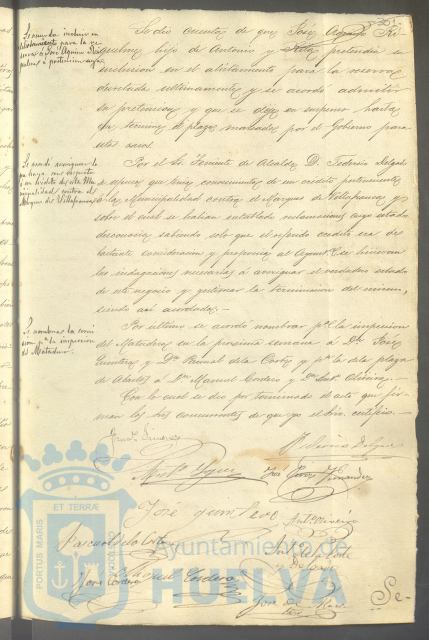 301
Se acuerda incluir en
alistamiento para la re-
serva a José Aquino Ri-
quelme a pretension suya.
Se dió cuenta de que José Aquino Ri-
quelme hijo de Antonio y Rita pretendia su
inclusion en el alistamiento para la reserva
decretada ultimamente y se acordó admitir
su pretension y que se deje en suspenso hasta
que termine el plazo marcado por el Gobierno para
este caso.
Se acordó averiguar lo
que haya con respecto
a un crédito de esta Mu-
nicipalidad contra el
Marques de Villafranca.
Por el Sr. Teniente de Alcalde D. Federico Delgado
se espuso que tenia conocimiento de un credito perteneciente
a la Municipalidad contra el Marques de Villafranca y
sobre el cual se habian entablado reclamaciones cuyo estado
desconocia sabiendo solo que el referido credito era de
bastante consideracion y proponia al Ayunt.º se hicieran
las indagaciones necesarias á averiguar el verdadero estado
de este negocio y gestionar la terminacion del mismo,
siendo asi acordado.
Se nombran la comi-
sion p.ª la inspeccion
del Matadero.
Por ultimo se acordó nombrar p.ª la inspeccion
del Matadero en la proxima semana a D. José
Quintero y D. Pascual de la Corte y p.ª la de la plaza
de Abastos á D. Manuel Cordero y D. Ant.º Oliveira.
Con lo cual se dio por terminado el acto que fir-
man los tres concurrentes de que yo el Srio. certifico.
Federico Delgado
José Quintero
Pascual de la Corte
Miguel Cordero
Se-
PORTUS MARIS ET TERRÆ CUSTODIA
Ayuntamiento de
HUELVA